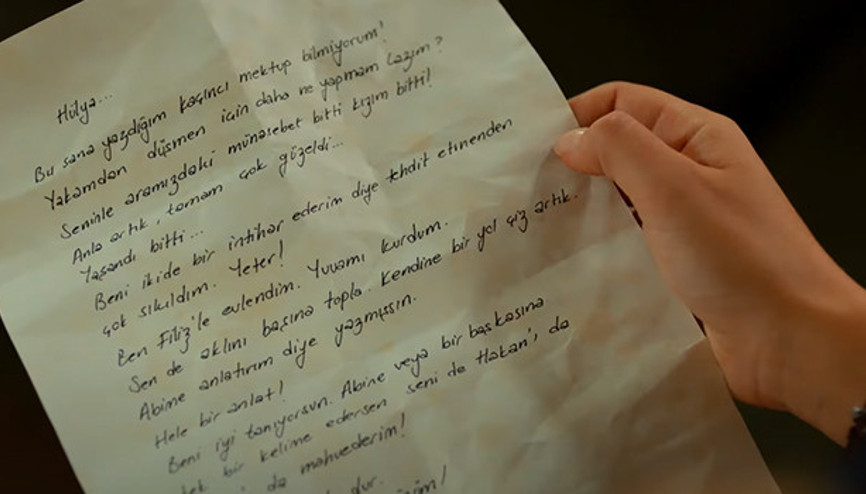 Hülya...
Bu sana yazdığım kaçıncı mektup bilmiyorum!
Yakamdan düşmen için daha ne yapmam lazım?
Seninle aramızdaki münasebet bitti kızım bitti!
Anla artık, tamam çok güzeldi...
Yaşandı bitti...
Beni ikide bir intihar ederim diye tehdit etmenden
çok sıkıldım. Yeter!
Ben Filiz'le evlendim. Yuvamı kurdum.
Sen de aklını başına topla.. Kendine bir yol çiz artık.
Abime anlatırım diye yazmışsın.
Hele bir anlat!
Beni iyi tanıyorsun. Abine veya bir başkasına
tek bir kelime edersen seni de Hakan'ı da
da mahvederim!